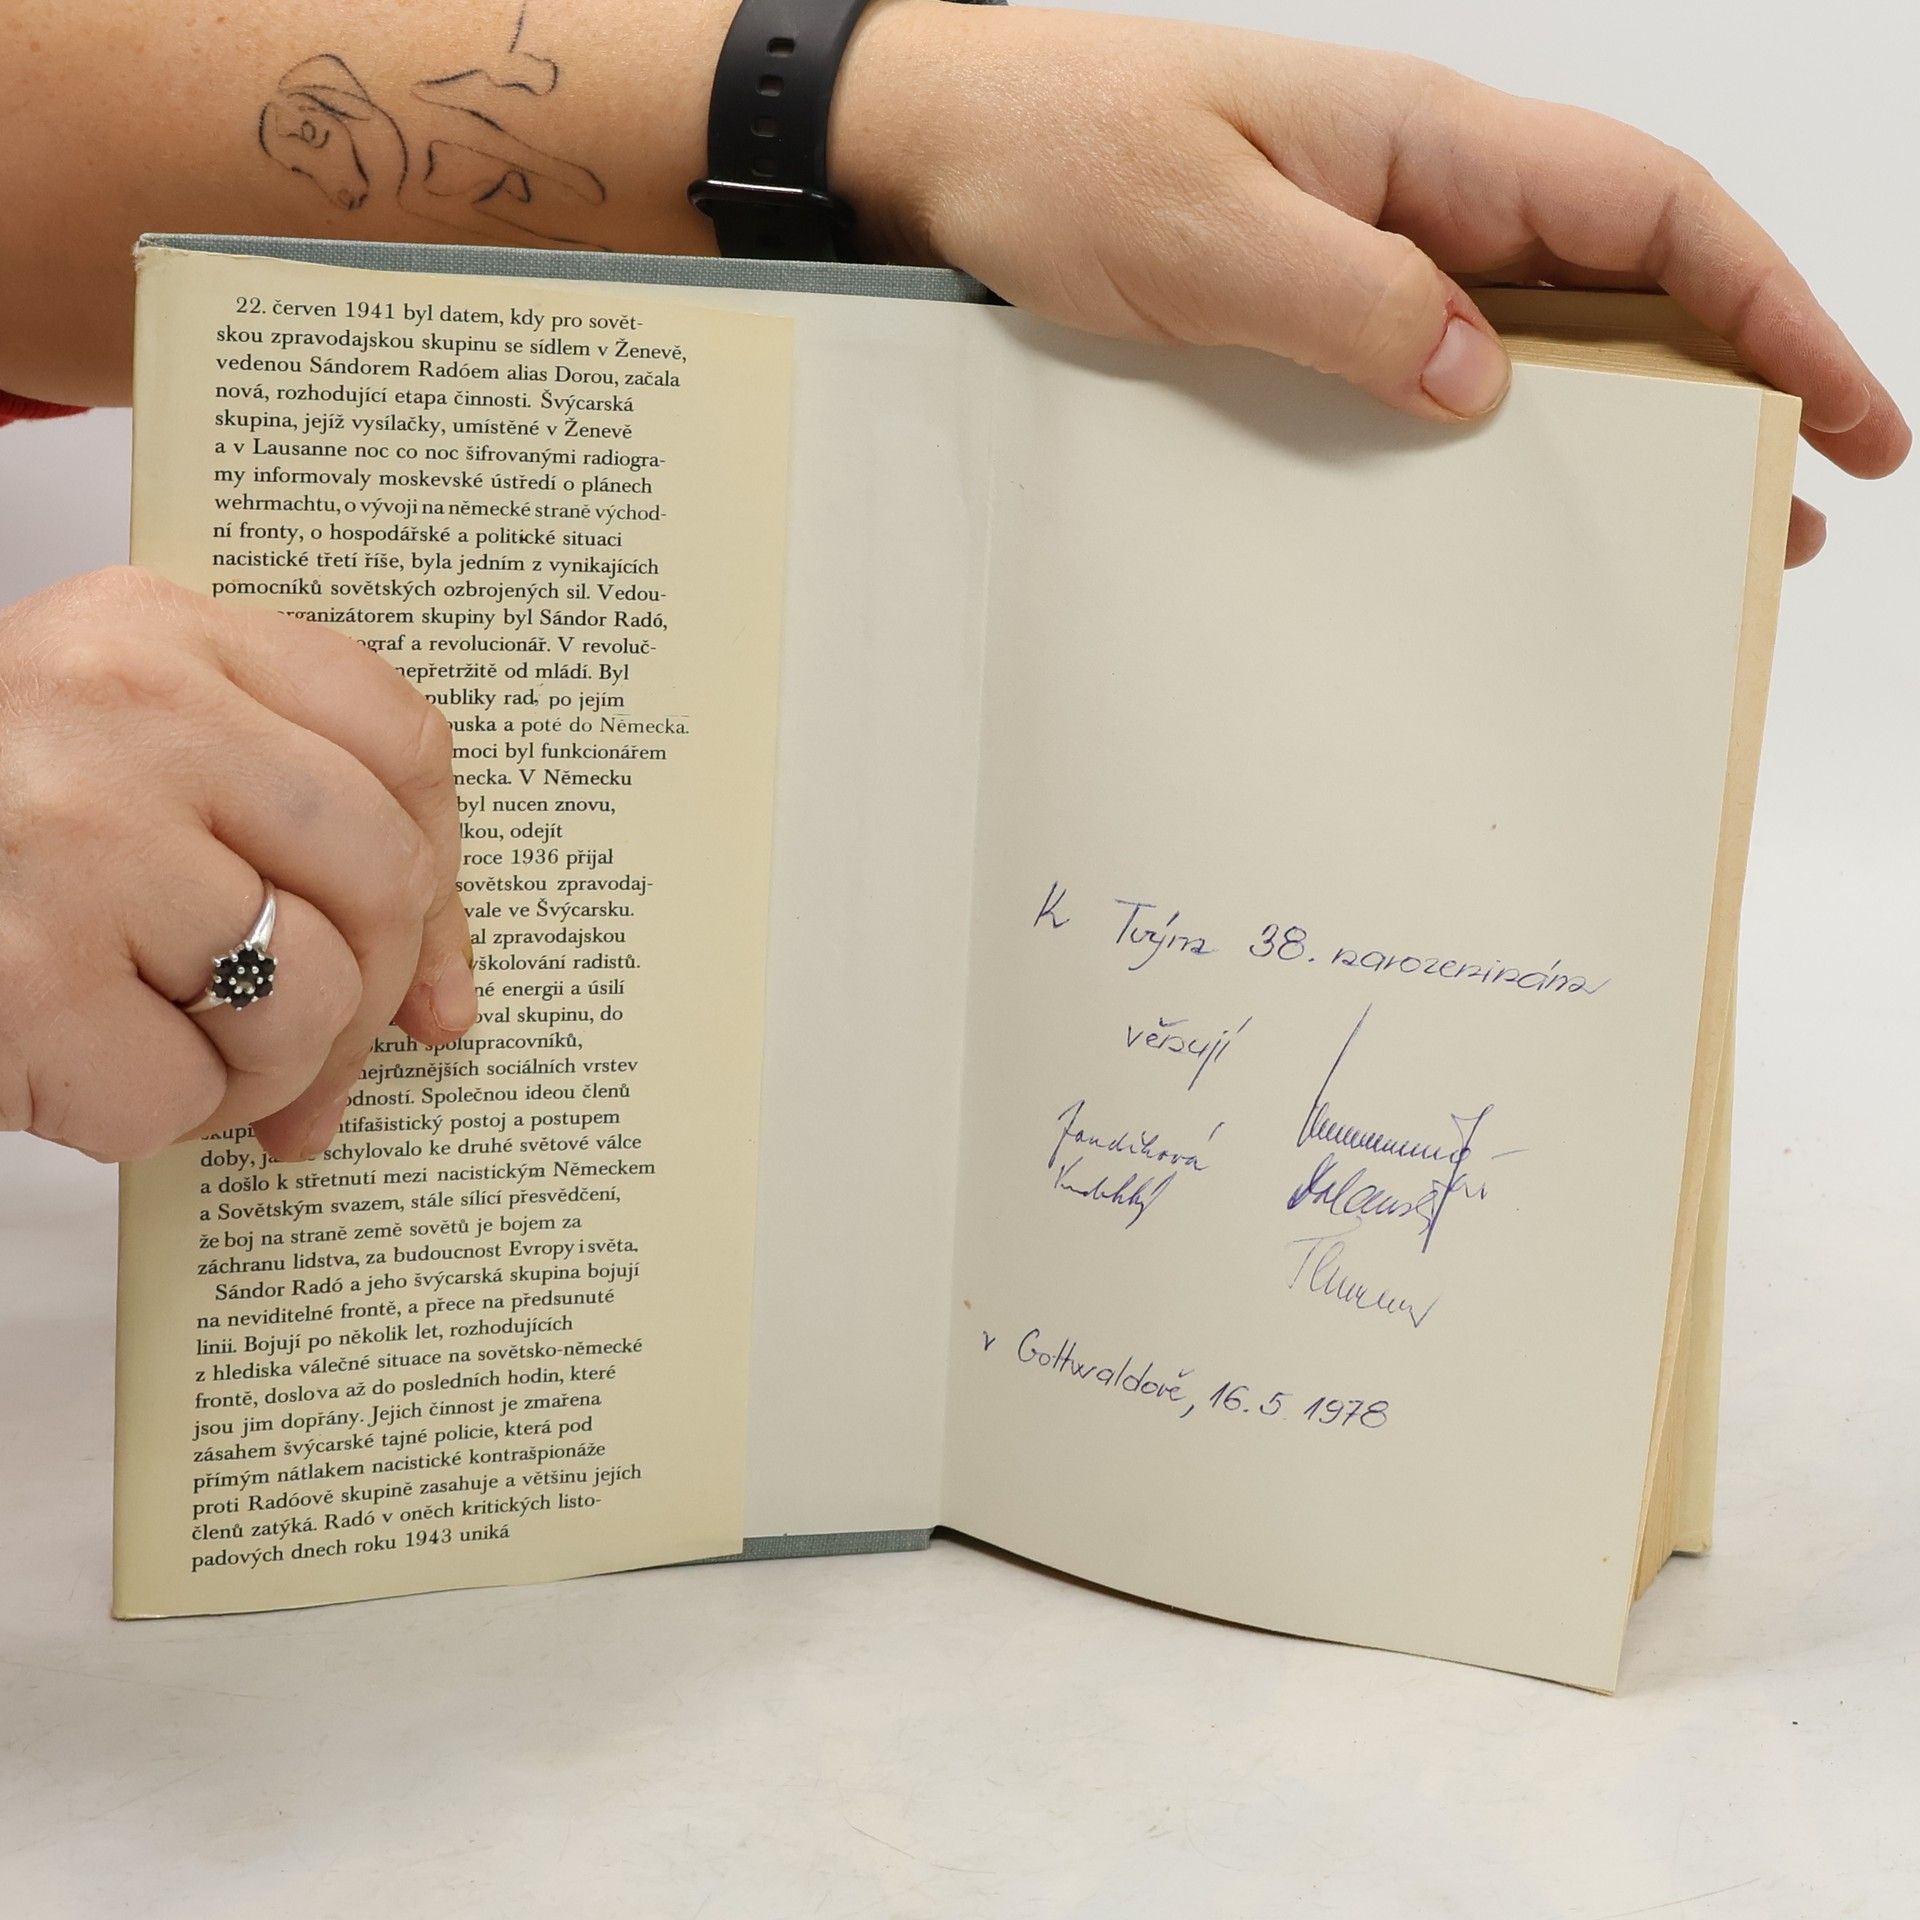 22. červen 1941 byl datem, kdy pro sovět-
skou zpravodajskou skupinu se sídlem v Ženevě,
vedenou Sándorem Radóem alias Dorou, začala
nová, rozhodující etapa činnosti. Švýcarská
skupina, jejíž vysílačky, umístěné v Ženevě
a v Lausanne noc co noc šifrovanými radiogra-
my informovaly moskevské ústředí o plánech
wehrmachtu, o vývoji na německé straně východ-
ní fronty, o hospodářské a politické situaci
nacistické třetí říše, byla jedním z vynikajících
pomocníků sovětských ozbrojených sil. Vedou-
organizátorem skupiny byl Sándor Radó,
ograf a revolucionář. V revoluč-
nepřetržitě od mládí. Byl
publiky rad, po jejím
ouska a poté do Německa.
moci byl funkcionářem
mecka. V Německu
byl nucen znovu,
lkou, odejít
roce 1936 přijal
sovětskou zpravodaj-
vale ve Švýcarsku.
al zpravodajskou
yškolování radistů.
né energii a úsilí
oval skupinu, do
okruh spolupracovníků,
nejrůznějších sociálních vrstev
odností. Společnou ideou členů
skupi ntifašistický postoj a postupem
doby, ja schylovalo ke druhé světové válce
a došlo k střetnutí mezi nacistickým Německem
a Sovětským svazem, stále sílící přesvědčení,
že boj na straně země sovětů je bojem za
záchranu lidstva, za budoucnost Evropy i světa.
Sándor Radó a jeho švýcarská skupina bojují
na neviditelné frontě, a přece na předsunuté
linii. Bojují po několik let, rozhodujících
z hlediska válečné situace na sovětsko-německé
frontě, doslova až do posledních hodin, které
jsou jim dopřány. Jejich činnost je zmařena
zásahem švýcarské tajné policie, která pod
přímým nátlakem nacistické kontrašpionáže
proti Radóově skupině zasahuje a většinu jejích
členů zatýká. Radó v oněch kritických listo-
padových dnech roku 1943 uniká
K Tvým 38. narozeninám
věnují
Jandíková
v Gottwaldově, 16. 5. 1978